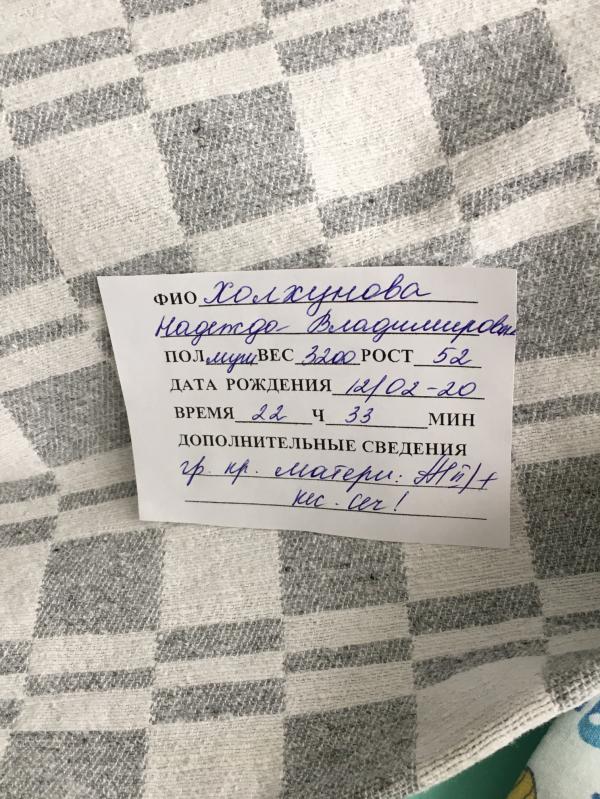 ФИО Холхунова
Надежда Владимировна
ПОЛ муж ВЕС 3200 РОСТ 52
ДАТА РОЖДЕНИЯ 12/02-20
ВРЕМЯ 22 Ч 33 МИН
ДОПОЛНИТЕЛЬНЫЕ СВЕДЕНИЯ
гр. кр. матери:
кес. сеч!